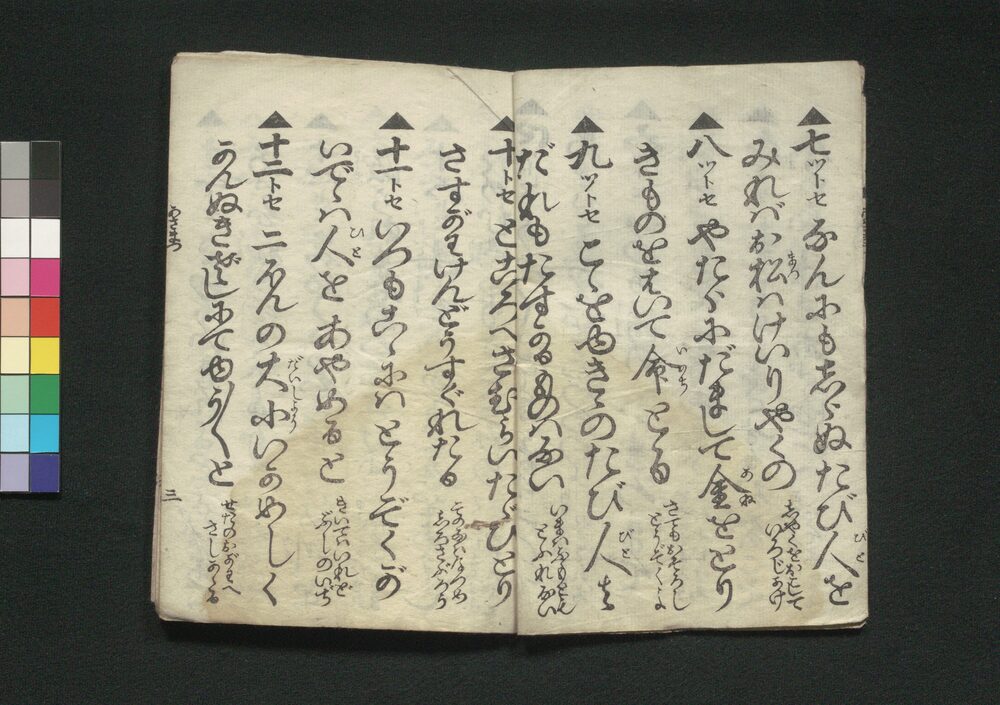 ▲七ツトセ なんにもしらぬたび人を
みればお松はけいりやくの しやくをおこして いろじかけ
▲八ツトセ やたらにだまして金をとり
きものをはいで命とる さてもおそろし とうぞくよ
▲九ツトセ こゝをゆきゝのたび人は
だれもたすかるものはない いまはなもとも とふれない
▲十トセ ところへさむらいたゞひとり
さすがわけんどうすぐれたる そのなはなつめ しろさぶろう
▲十一トセ いつもこゝにはとうぞくが
いでゝは人をあやめると きいてはいれど ぶしのいぢ
▲十二トセ 二ほんの大小いかめしく
かんぬきざしにてゆう〳〵と せたのおがわへ さしかゝる
あさまつ
三